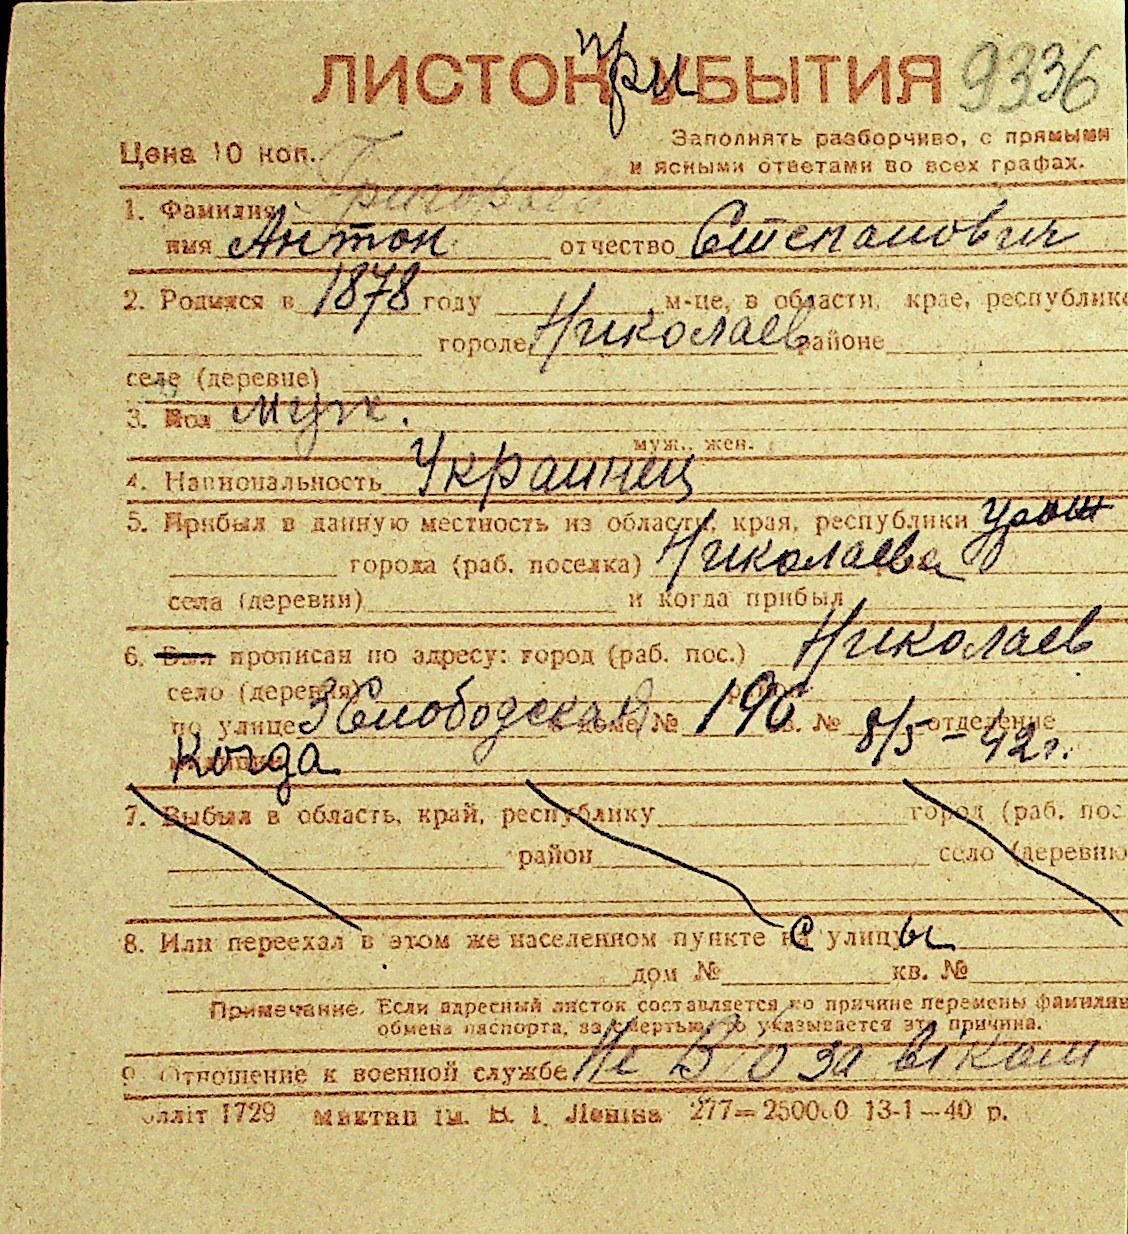 ЛИСТОК при УБЫТИЯ 9336
Цена 10 коп. Заполнять разборчиво, с прямыми
и ясными ответами во всех графах.
1. Фамилия
имя Антон отчество Степанович
2. Родился в 1878 году м-це, в области, крае, республике
городе Николаев районе
селе (деревне)
3. Пол муж.
муж., жен.
4. Национальность Украинец
5. Прибыл в данную местность из области, края, республики
города (раб. поселка) Николаева
села (деревни) и когда прибыл
6. Был прописан по адресу: город (раб. пос.) Николаев
село (деревня) район
по улице 3 Слободская в доме № 196 кв. № 8/5-42 г. отделение
Когда
7. Выбыл в область, край, республику город (раб. пос.
район село (деревню
8. Или переехал в этом же населенном пункте с улицы
дом № кв. №
Примечание. Если адресный листок составляется по причине перемены фамилии
обмена паспорта, за смертью, то указывается эта причина.
9. Отношение к военной службе Не В/О за віком
олліт 1729 ім. В. І. Леніна 277—250000 13-1—40 р.